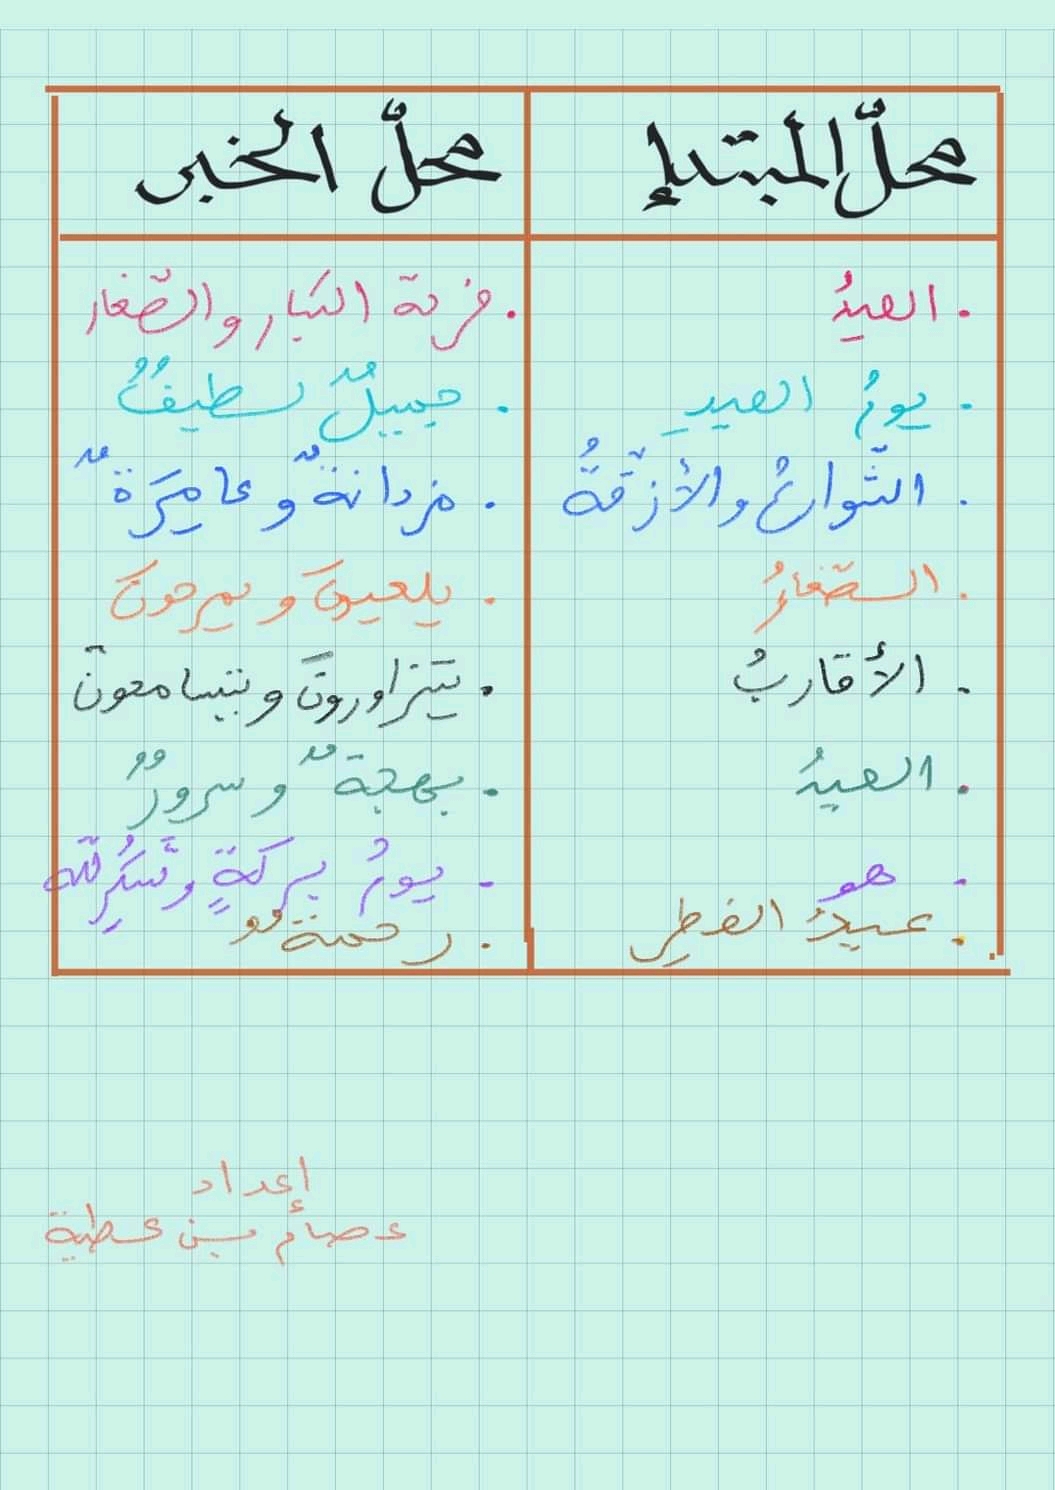 محلّ المبتدإ
محلّ الخبر
. العيدُ
. فرحة الكبار والصّغار
. يومُ العيدِ
. جميلٌ لطيفٌ
. الشّوارعُ والأزقّةُ
. مزدانةٌ وعامِرَةٌ
. الصّغارُ
. يلعبونَ ويمرحونَ
. الأقاربُ
. يتزاورونَ ويتسامحونَ
. العيدُ
. بهجةٌ وسرورٌ
. هو
. يومُ بركةٍ وشُكرٍ للّه
. عيدُ الفطرِ
. رحمةٌ
إعداد
عصام بن عطية